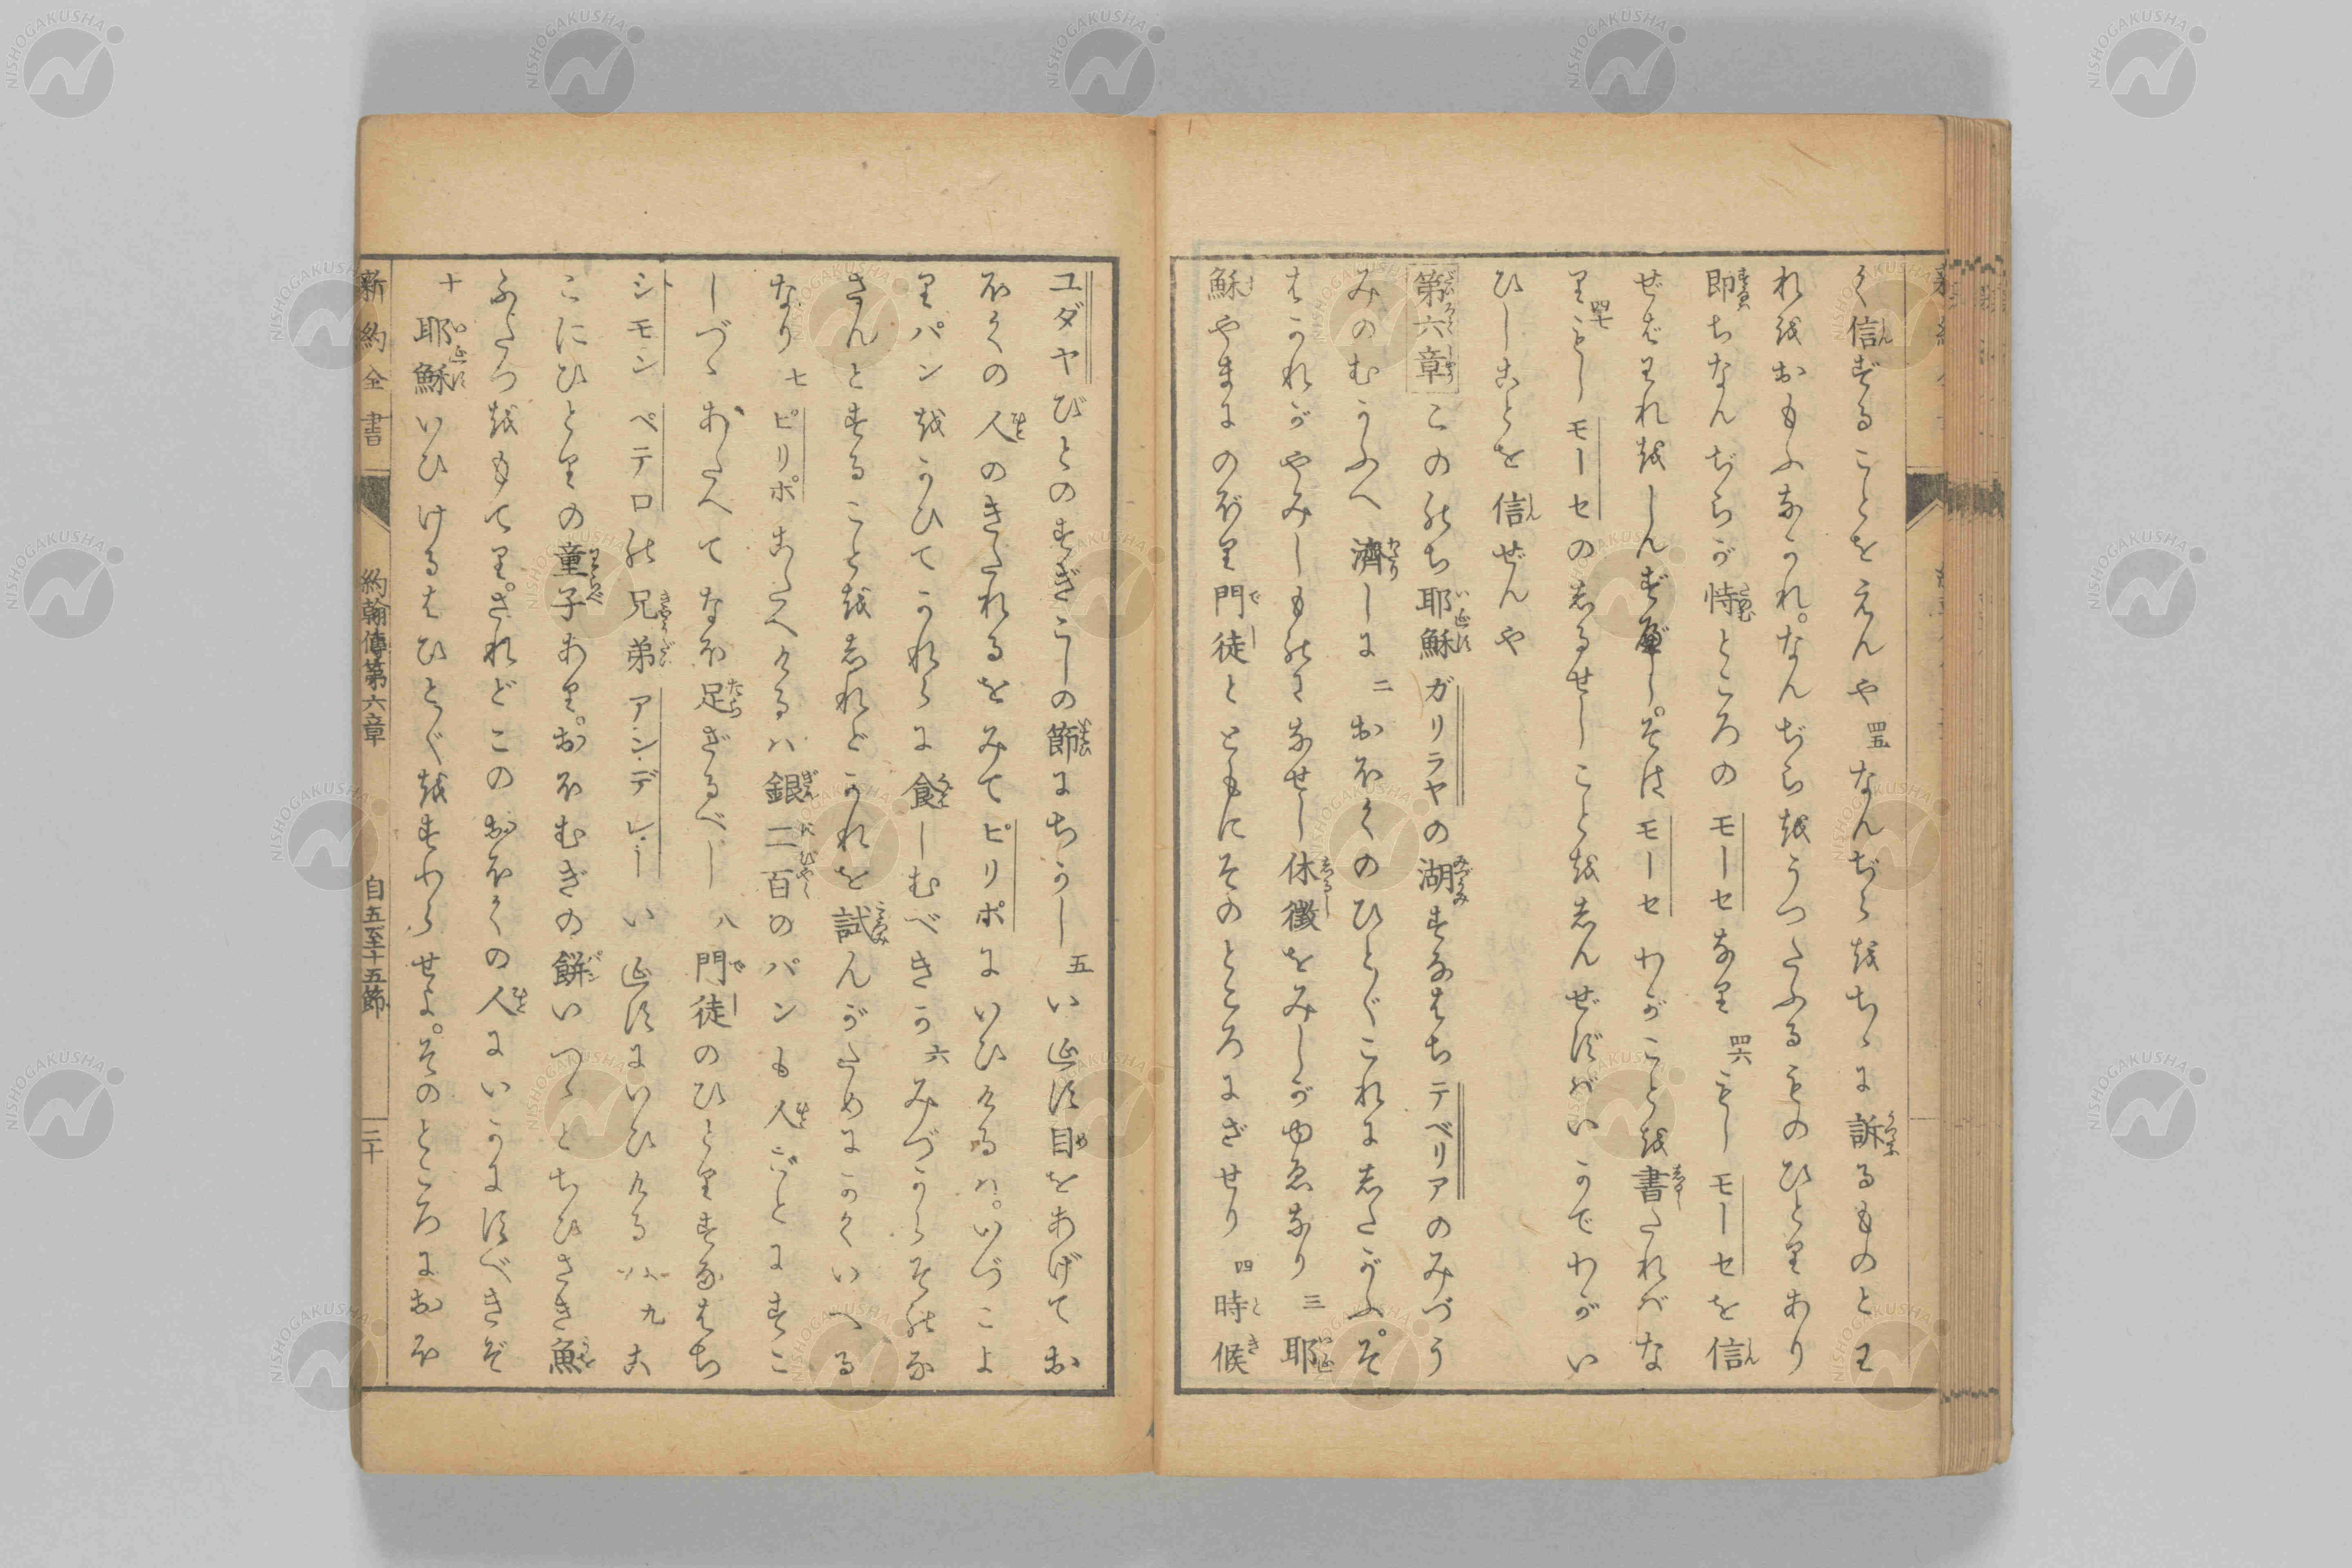 く信ずることをえんや 四五 なんぢら我ちゝに訴るものとわ
れをおもふなかれ。なんぢらをうつたふるものひとりあり
即ちなんぢらが恃ところのモーセなり 四六 もしモーセを信
ぜばわれをしんずべし。そはモーセわがことを書たればな
り 四七 もしモーセのしるせしことをしんぜずバいかでわがい
ひしことを信ぜんや
第六章 こののち耶穌ガリラヤの湖すなはちテベリアのみづう
みのむかふへ濟しに 二 おほくのひとびとこれにしたがふ。そ
はかれがやみしものになせし休徴をみしがゆゑなり 三 耶
穌やまにのぼり門徒とともにそのところにざせり 四 時候
ユダヤびとのすぎこしの節にちかし 五 いエス目をあげてお
ほくの人のきたれるをみてピリポにいひけるハ。いづこよ
りパンをかひてかれらに食しむべきか 六 みづからそのな
さんとすることをしれどかれを試んがためにかくいへる
なり 七 ピリポこたへけるハ銀二百のパンも人ごとにすこ
しづゝあたへてなほ足ざるべし 八 門徒のひとりすなはち
シモンペテロの兄弟アンデレーいエスにいひけるハ 九 こ
こにひとりの童子あり。おほむぎの餅いつゝとちひさき魚
ふたつをもてり。されどこのおほくの人にいかにすべきぞ
十 耶穌いひけるはひとびとをすわらせよ。そのところにおほ
新約全書 約翰傳第六章 自五至十五節 二十